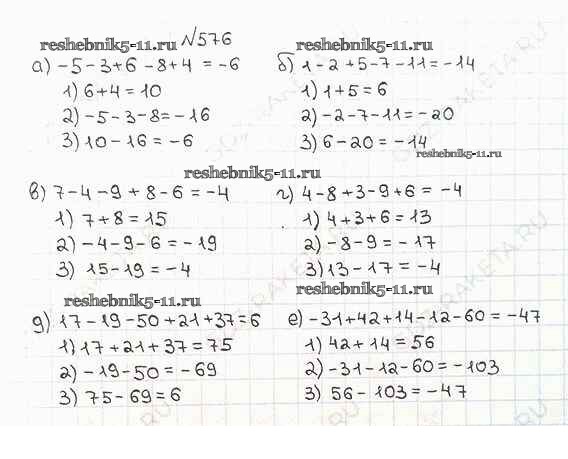 №576
reshebnik5-11.ru reshebnik5-11.ru
а) -5-3+6-8+4 = -6
1) 6+4=10
2) -5-3-8=-16
3) 10-16=-6
б) 1-2+5-7-11=-14
1) 1+5=6
2) -2-7-11=-20
3) 6-20=-14
reshebnik5-11.ru
reshebnik5-11.ru
в) 7-4-9+8-6=-4
1) 7+8=15
2) -4-9-6=-19
3) 15-19=-4
г) 4-8+3-9+6=-4
1) 4+3+6=13
2) -8-9=-17
3) 13-17=-4
reshebnik5-11.ru reshebnik5-11.ru
д) 17-19-50+21+37=6
1) 17+21+37=75
2) -19-50=-69
3) 75-69=6
е) -31+42+14-12-60=-47
1) 42+14=56
2) -31-12-60=-103
3) 56-103=-47